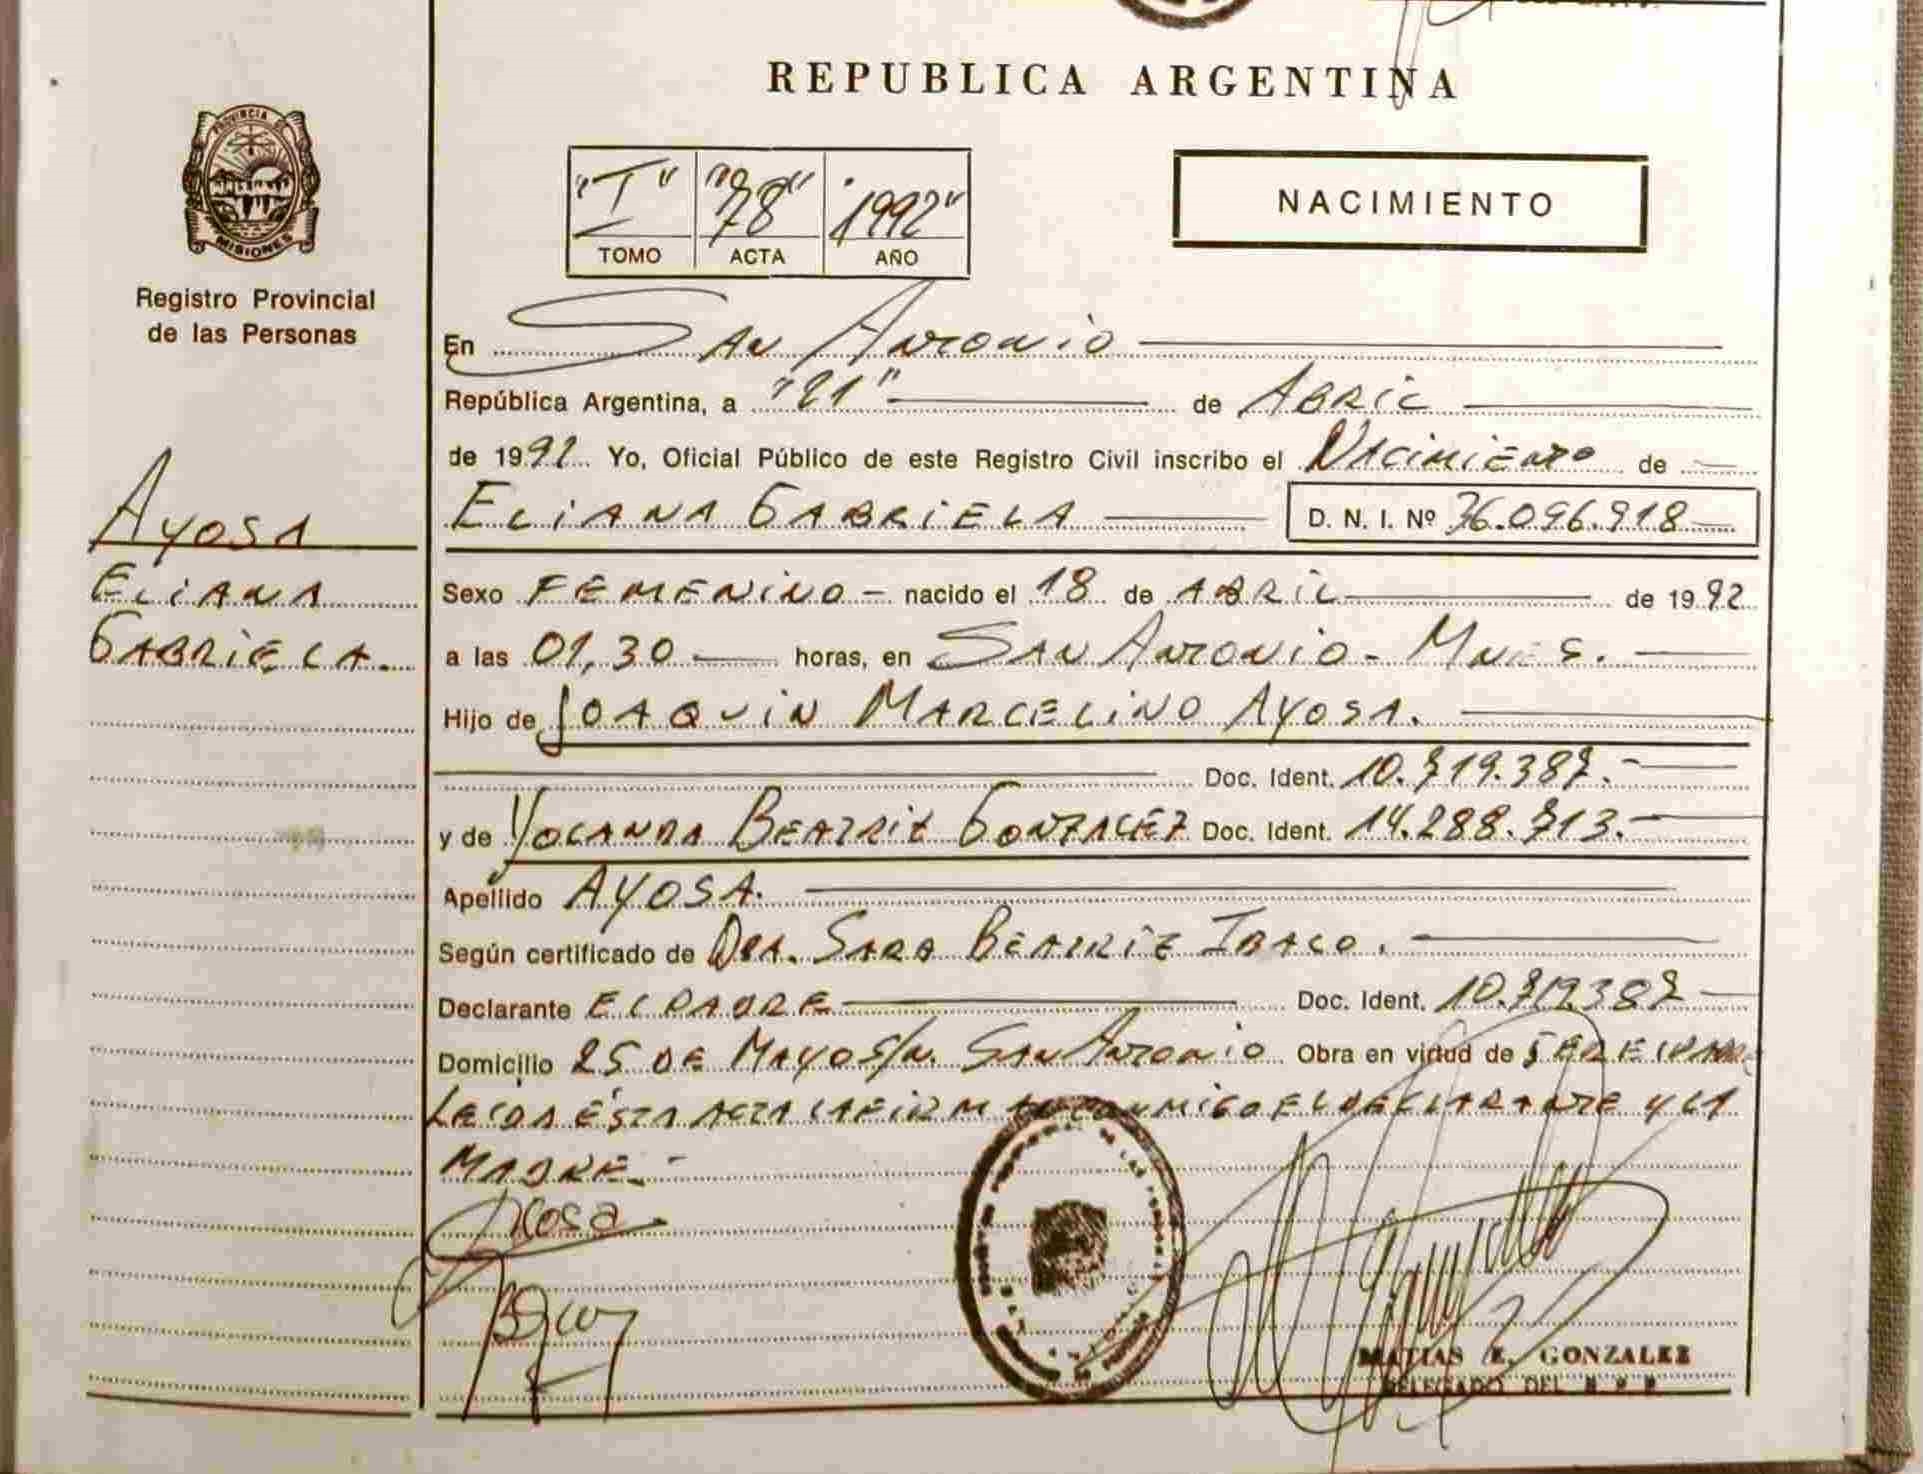 REPUBLICA ARGENTINA
PROVINCIA DE
MISIONES
Registro Provincial
de las Personas
"I" "78" "1992"
TOMO ACTA AÑO
NACIMIENTO
En San Antonio
República Argentina, a "21" de Abril
de 1992 Yo, Oficial Público de este Registro Civil inscribo el Nacimiento de
Eliana Gabriela D. N. I. Nº 36.096.918
Ayosa
Eliana
Gabriela.
Sexo Femenino - nacido el 18 de Abril de 1992
a las 01,30 horas, en San Antonio - Mnes.
Hijo de Joaquin Marcelino Ayosa.
Doc. Ident. 10.719.387.-
y de Yolanda Beatriz Gonzalez Doc. Ident. 14.288.713.-
Apellido Ayosa.
Según certificado de Dra. Sara Beatriz
Declarante El Padre Doc. Ident. 10.719.387
Domicilio 25 de Mayo s/n. San Antonio Obra en virtud de
Leida ésta acta la firman conmigo el declarante y la
Madre.-
MATIAS E. GONZALEZ
DELEGADO DEL